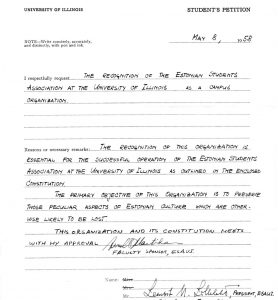 UNIVERSITY OF ILLINOIS
STUDENT'S PETITION
MAY 8, 1952
NOTE:—Write concisely, accurately,
and distinctly, with pen and ink.
I respectfully request THE RECOGNITION OF THE ESTONIAN STUDENTS
ASSOCIATION AT THE UNIVERSITY OF ILLINOIS AS A CAMPUS
ORGANIZATION.
Reasons or necessary remarks: THE RECOGNITION OF THIS ORGANIZATION IS
ESSENTIAL FOR THE SUCCESSFUL OPERATION OF THE ESTONIAN STUDENTS
ASSOCIATION AT THE UNIVERSITY OF ILLINOIS AS OUTLINED IN THE ENCLOSED
CONSTITUTION.
THE PRIMARY OBJECTIVE OF THIS ORGANIZATION IS TO PERSERVE
THOSE PECULIAR ASPECTS OF ESTONIAN CULTURE WHICH ARE OTHER-
WISE LIKELY TO BE LOST.
THIS ORGANIZATION AND ITS CONSTITUTION MEETS
WITH MY APPROVAL
FACULTY SPONSOR, ESAUI
Name
Mr.
PRESIDENT, ESAUI